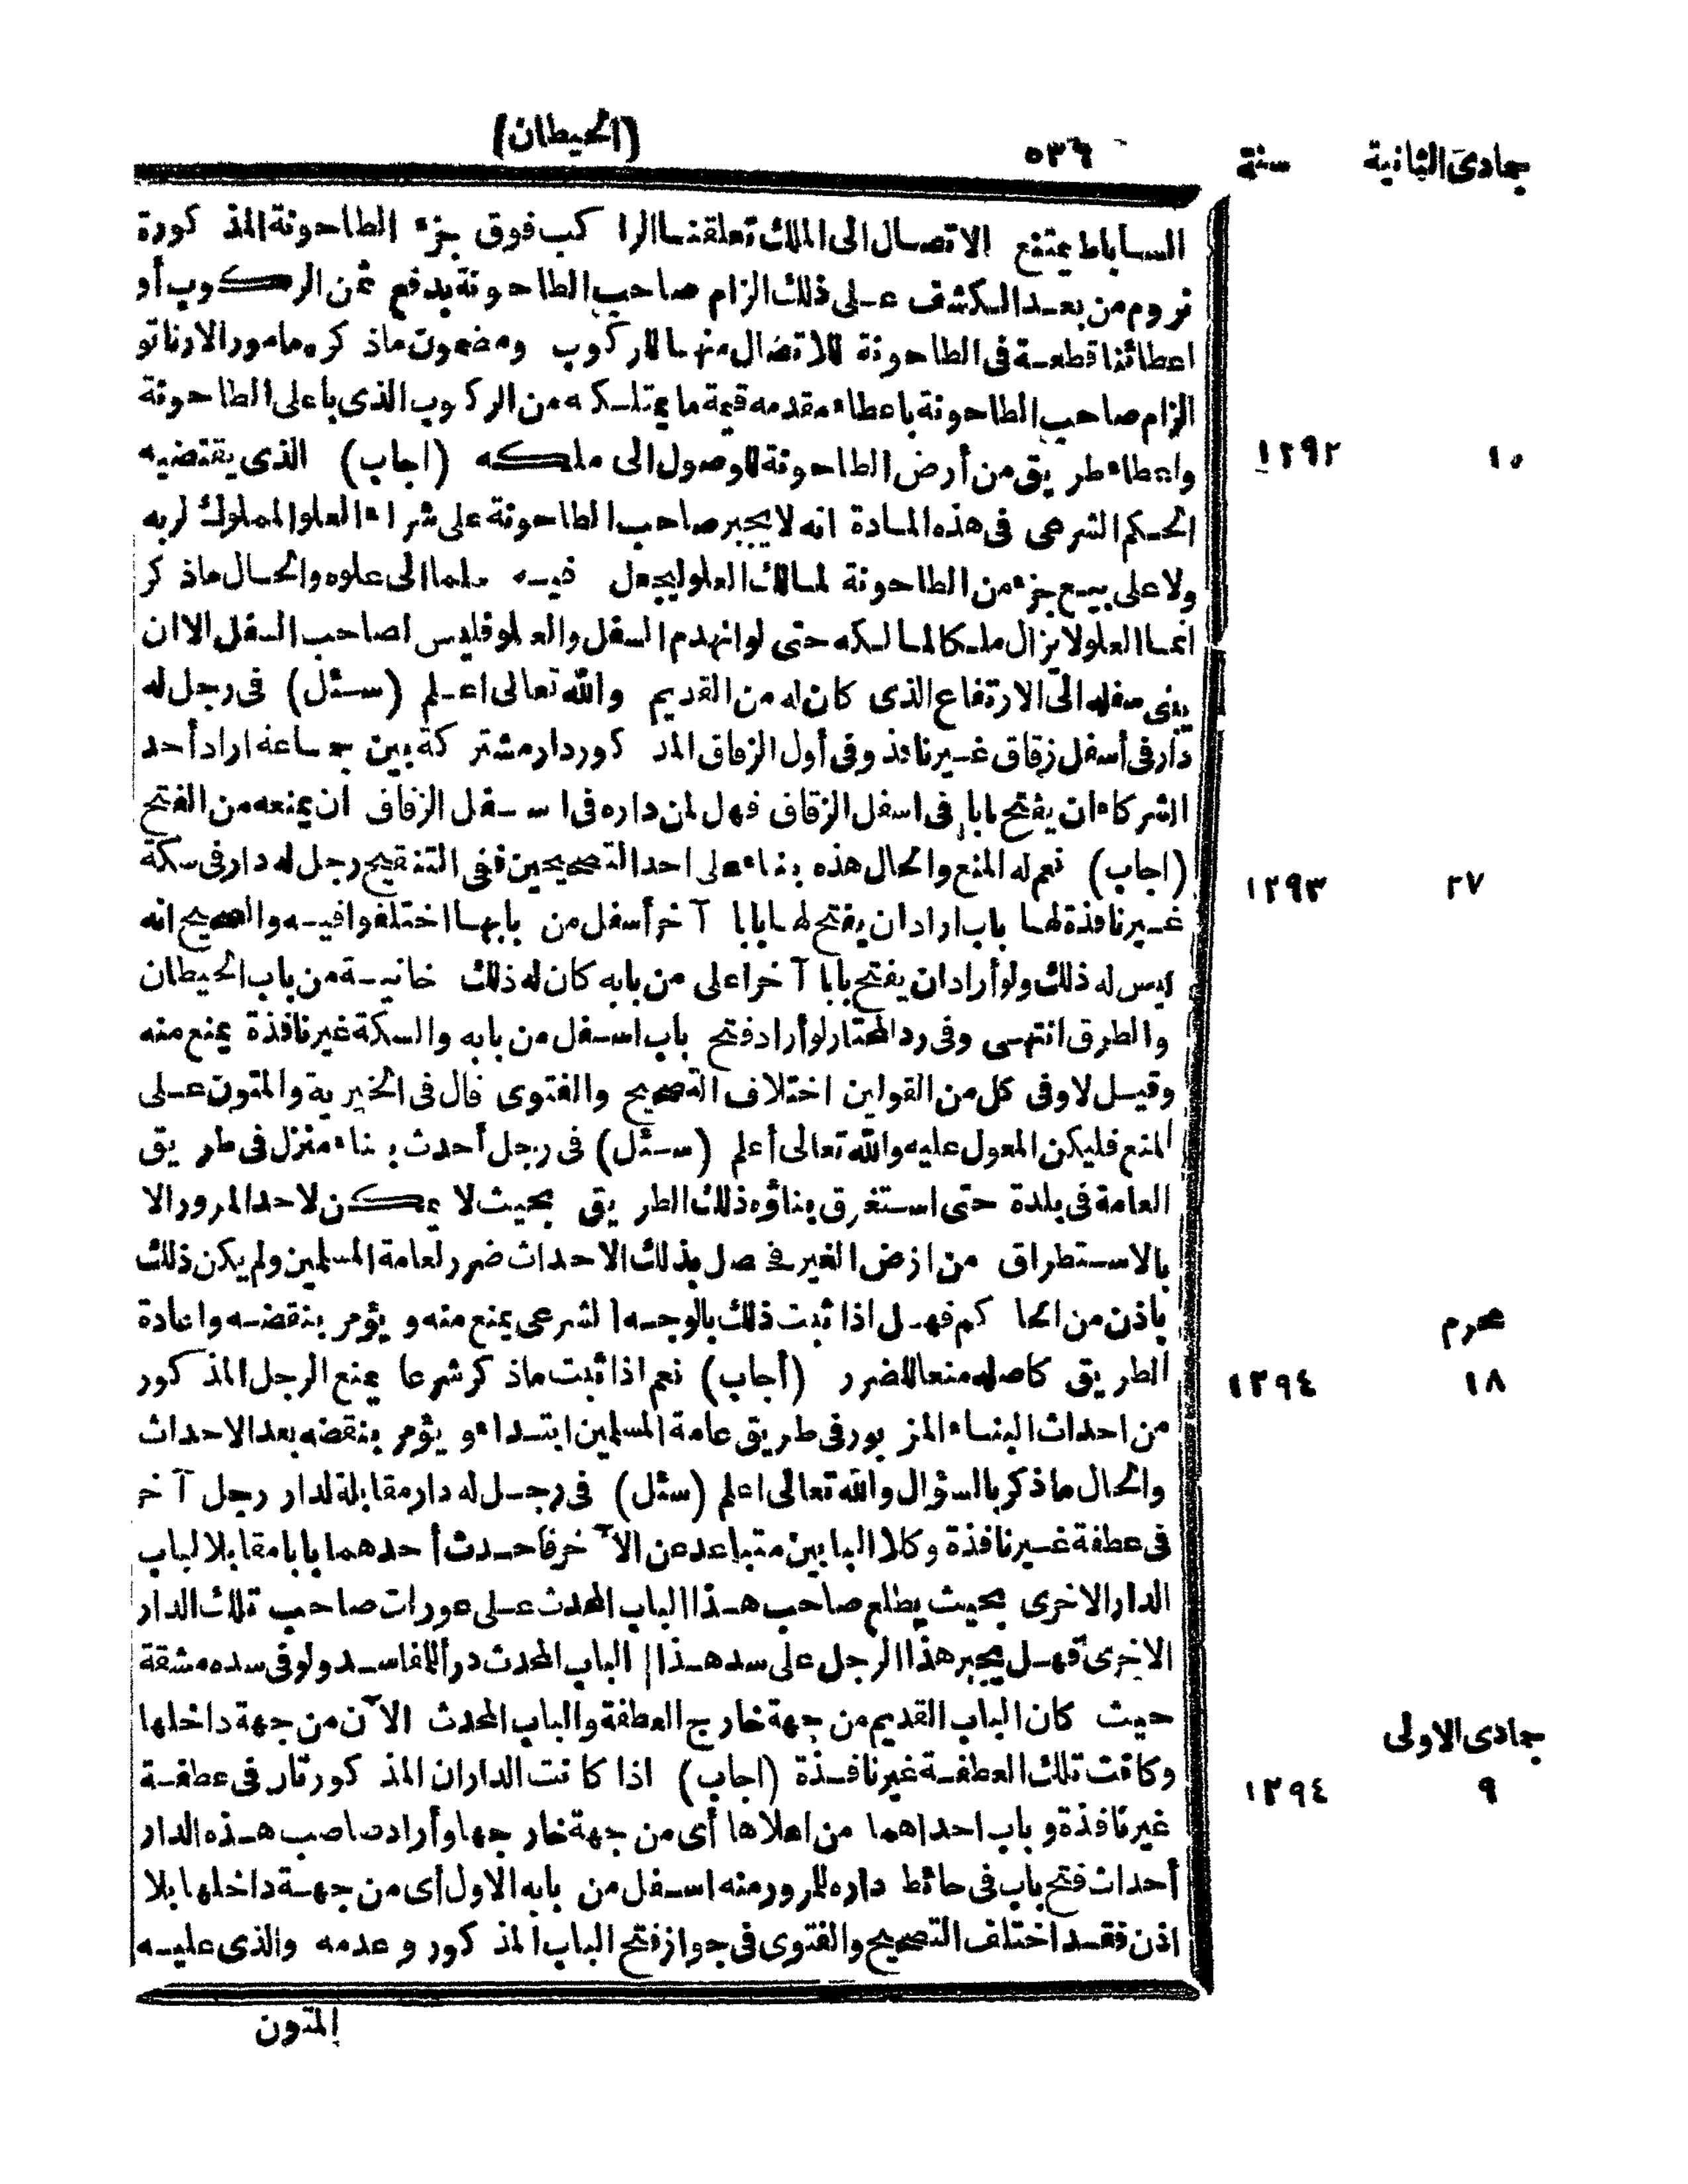 جمادى الثانية سنة ٥٣٦ (الحيطان)
الساباط يمتنع الاتصال الى الملك تعلقنا الراكب فوق جزء الطاحونة المذكورة
نروم من بعد الكشف على ذلك الزام صاحب الطاحونة بدفع ثمن الركوب أو
اعطائنا قطعة فى الطاحونة للاتصال منها للركوب ومضمون ماذكره مامور الارناتو
الزام صاحب الطاحونة باعطاء مقدمه قيمة ما يمتلكه من الركوب الذى باعلى الطاحونة
واعطاء طريق من أرض الطاحونة للوصول الى ملكه (اجاب) الذى يقتضيه ١٢٩٢ ١٥
الحكم الشرعى فى هذه المادة انه لا يجبر صاحب الطاحونة على شراء العلو المملوك لربه
ولا على بيع جزء من الطاحونة لمالك العلو ليجعل فيه سلما الى علوه والحال ماذكر
انما العلو لا يزال ملكا لمالكه حتى لو انهدم السفل والعلو فليس لصاحب السفل الا ان
يبنى سفله الى الارتفاع الذى كان له من القديم والله تعالى اعلم (سئل) فى رجل له
دار فى أسفل زقاق غير نافذ وفى أول الزقاق المذكور دار مشتركة بين جماعة اراد أحد
الشركاء ان يفتح بابا فى اسفل الزقاق فهل لمن داره فى اسفل الزقاق ان يمنعه من الفتح
(اجاب) نعم له المنع والحال هذه بناء على احد التصحيحين ففى التنقيح رجل له دار فى سكة ١٢٩٣ ٢٧
غير نافذة لها باب اراد ان يفتح لها بابا آخر أسفل من بابها اختلفوا فيه والصحيح انه
ليس له ذلك ولو أراد ان يفتح بابا آخر اعلى من بابه كان له ذلك خانية من باب الحيطان
والطرق انتهى وفى رد المحتار لو أراد فتح باب اسفل من بابه والسكة غير نافذة يمنع منه
وقيل لا وفى كل من القولين اختلاف التصحيح والفتوى قال فى الخيرية والمتون على
المنع فليكن المعول عليه والله تعالى أعلم (سئل) فى رجل أحدث بناء منزل فى طريق
العامة فى بلدة حتى استغرق بناؤه ذلك الطريق بحيث لا يمكن لاحد المرور الا
بالاستطراق من ارض الغير فحصل بذلك الاحداث ضرر لعامة المسلمين ولم يكن ذلك
باذن من الحاكم فهل اذا ثبت ذلك بالوجه الشرعى يمنع منه ويؤمر بنقضه واعادة محرم
الطريق كاصله منعا للضرر (أجاب) نعم اذا ثبت ماذكر شرعا يمنع الرجل المذكور ١٢٩٤ ١٨
من احداث البناء المزبور فى طريق عامة المسلمين ابتداء ويؤمر بنقضه بعد الاحداث
والحال ماذكر بالسؤال والله تعالى اعلم (سئل) فى رجل له دار مقابلة لدار رجل آخر
فى عطفة غير نافذة وكلا البابين متباعد عن الآخر فأحدث أحدهما بابا مقابلا لباب
الدار الاخرى بحيث يطلع صاحب هذا الباب المحدث على عورات صاحب تلك الدار
الاخرى فهل يجبر هذا الرجل على سد هذا الباب المحدث درأ للمفاسد ولو فى سده مشقة
حيث كان الباب القديم من جهة خارج العطفة والباب المحدث الآن من جهة داخلها جمادى الاولى
وكانت تلك العطفة غير نافذة (اجاب) اذا كانت الداران المذكورتان فى عطفة ١٢٩٤ ٩
غير نافذة وباب احداهما من اعلاها أى من جهة خارجها وأراد صاحب هذه الدار
أحداث فتح باب فى حائط داره للمرور منه اسفل من بابه الاول أى من جهة داخلها بلا
اذن فقد اختلف التصحيح والفتوى فى جواز فتح الباب المذكور وعدمه والذى عليه
المتون